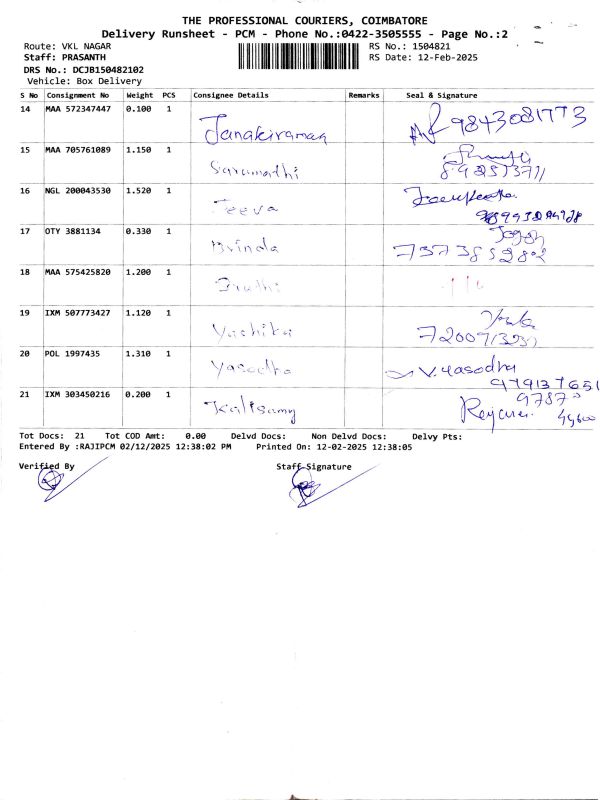 THE PROFESSIONAL COURIERS, COIMBATORE
Delivery Runsheet - PCM - Phone No.:0422-3505555 - Page No.:2
Route: VKL NAGAR RS No.: 1504821
Staff: PRASANTH RS Date: 12-Feb-2025
DRS No.: DCJB150482102
Vehicle: Box Delivery
S No Consignment No Weight PCS Consignee Details Remarks Seal & Signature
14 MAA 572347447 0.100 1 Janakiraman 9843081773
15 MAA 705761089 1.150 1 Saramathi
16 NGL 200043530 1.520 1 Jeeva
17 OTY 3881134 0.330 1 Brinda
18 MAA 575425820 1.200 1
19 IXM 507773427 1.120 1 Yashika
20 POL 1997435 1.310 1 Yasodha V. Yasodha
21 IXM 303450216 0.200 1 Kalisamy
Tot Docs: 21 Tot COD Amt: 0.00 Delvd Docs: Non Delvd Docs: Delvy Pts:
Entered By :RAJIPCM 02/12/2025 12:38:02 PM Printed On: 12-02-2025 12:38:05
Verified By Staff Signature